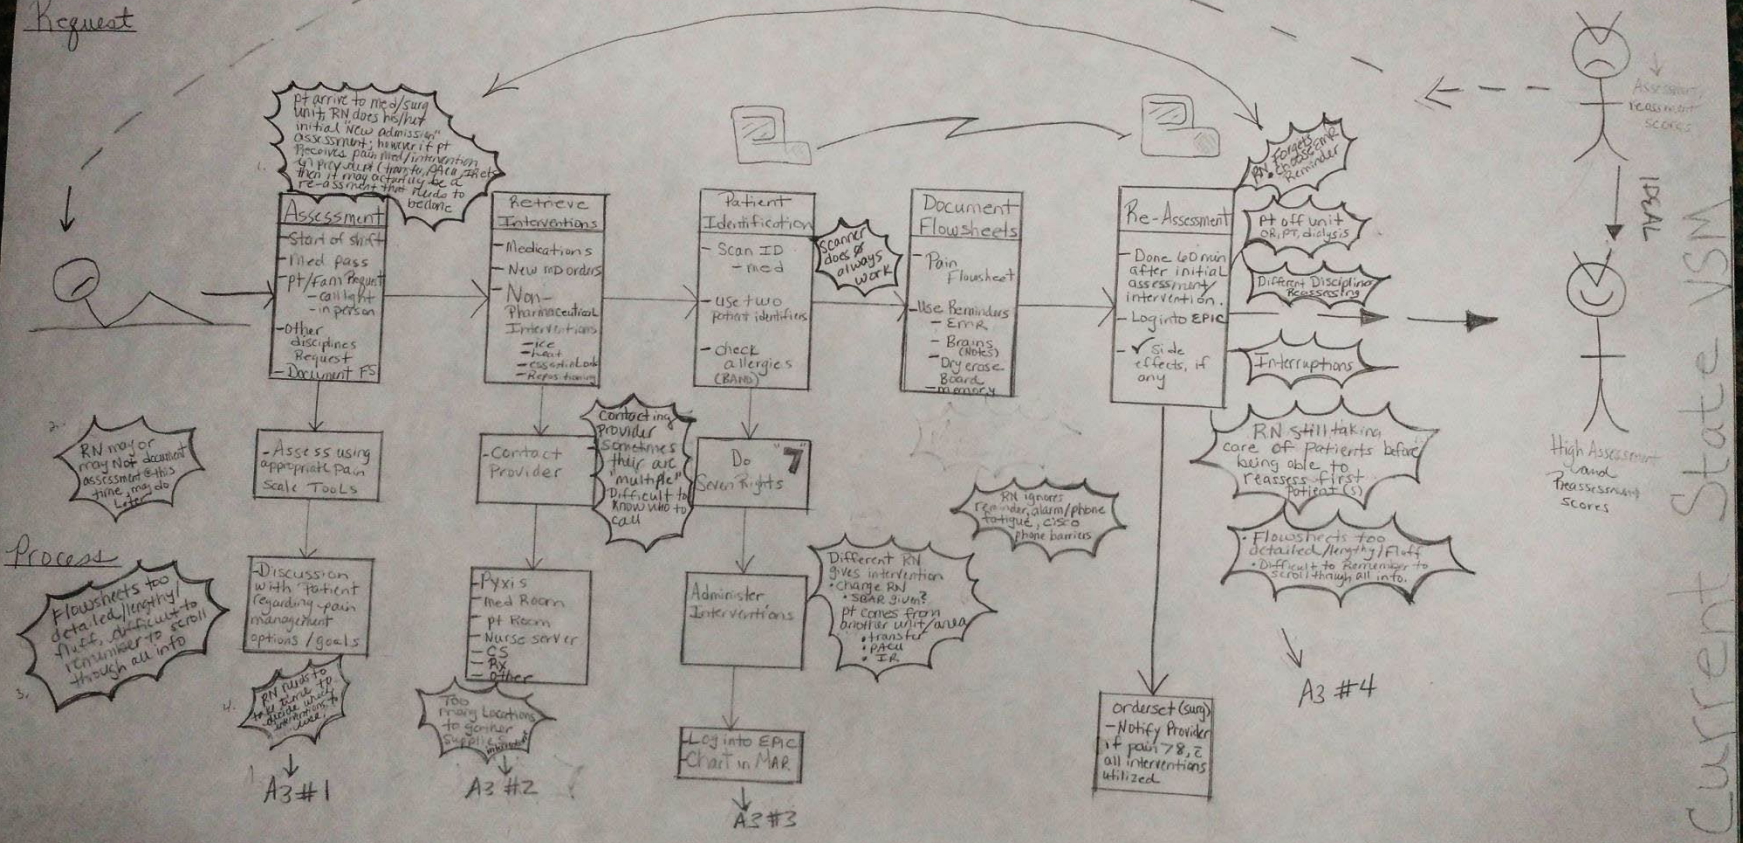 Request
pt arrive to med/surg
unit, RN does his/her
initial "New admission"
assessment; however if pt
Receives pain med/intervention
in prev. unit (transfer, PACU, IR etc
then it may actually be a
re-assment that needs to
be done
1.
Assessment
- Start of shift
- med pass
- pt/fam Request
- call light
- in person
- other
disciplines
Request
- Document FS
Retrieve
Interventions
- Medications
- New MD orders
- Non-
Pharmaceutical
Interventions
- ice
- heat
- Repositioning
Patient
Identification
- Scan ID
- med
- use two
patient identifiers
- check
allergies
(BAND)
Scanner
does not
always
work
Document
Flowsheets
- Pain
Flowsheet
- Use Reminders
- EMR
- Brains
(NOTES)
- Dry erase
Board
- memory
Re-Assessment
- Done 60 min
after initial
assessment/
intervention.
- Log into EPIC
- ✓ Side
effects, if
any
RN Forgets
Reminder
Pt off unit
OR, PT, dialysis
Different Discipline
Reassessing
Interruptions
RN still taking
care of patients before
being able to
reassess first
patient(s)
• Flowsheets too
detailed/lengthy/Fluff
• Difficult to Remember to
scroll though all info.
A3 #4
Assessment,
reassment
scores
IDEAL
High Assessment
and
Reassessment
scores
Current State VSM
2.
RN may or
may Not document
assessment @ this
time, may do
Later
- Assess using
appropriate pain
Scale TOOLS
- Contact
Provider
Contacting
Provider
sometimes
their are
"multiple"
Difficult to
know who to
call
Do "7"
Seven Rights
RN ignores
reminder, alarm/phone
fatigue, cisco
phone barriers
Process
Flowsheets too
detailed/lengthy/
fluff, difficult to
remember to scroll
through all info
3.
- Discussion
with patient
regarding pain
management
options/goals
4.
RN needs to
take time to
decide which
interventions to
use!
A3 #1
- Pyxis
- med Room
- pt Room
- Nurse server
- CS
- Rx
- other
Too
many Locations
to gather
supplies
A3 #2
Administer
Interventions
Different RN
gives intervention
• charge RN
• SBAR given?
pt comes from
another unit/area
• transfer
• PACU
• IR
- Log into EPIC
- Chart in MAR
A3 #3
orderset (surg)
- Notify Provider
if pain >8, c̄
all interventions
utilized